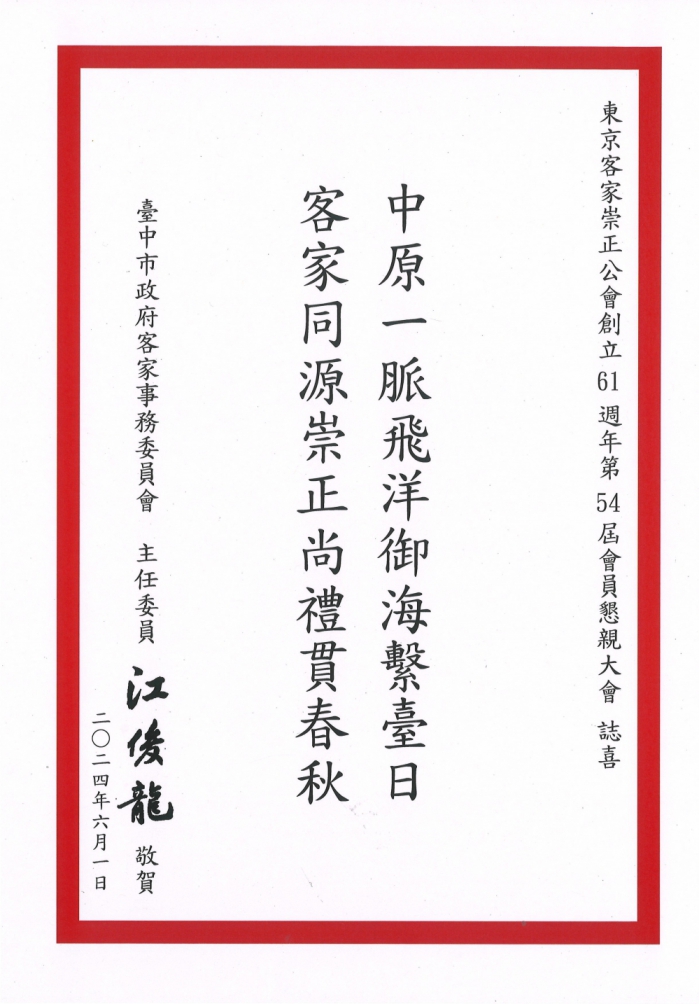 東京客家崇正公會創立61週年第54屆會員懇親大會 誌喜
中原一脈飛洋御海繫臺日
客家同源崇正尚禮貫春秋
臺中市政府客家事務委員會 主任委員 江俊龍 敬賀
二〇二四年六月一日